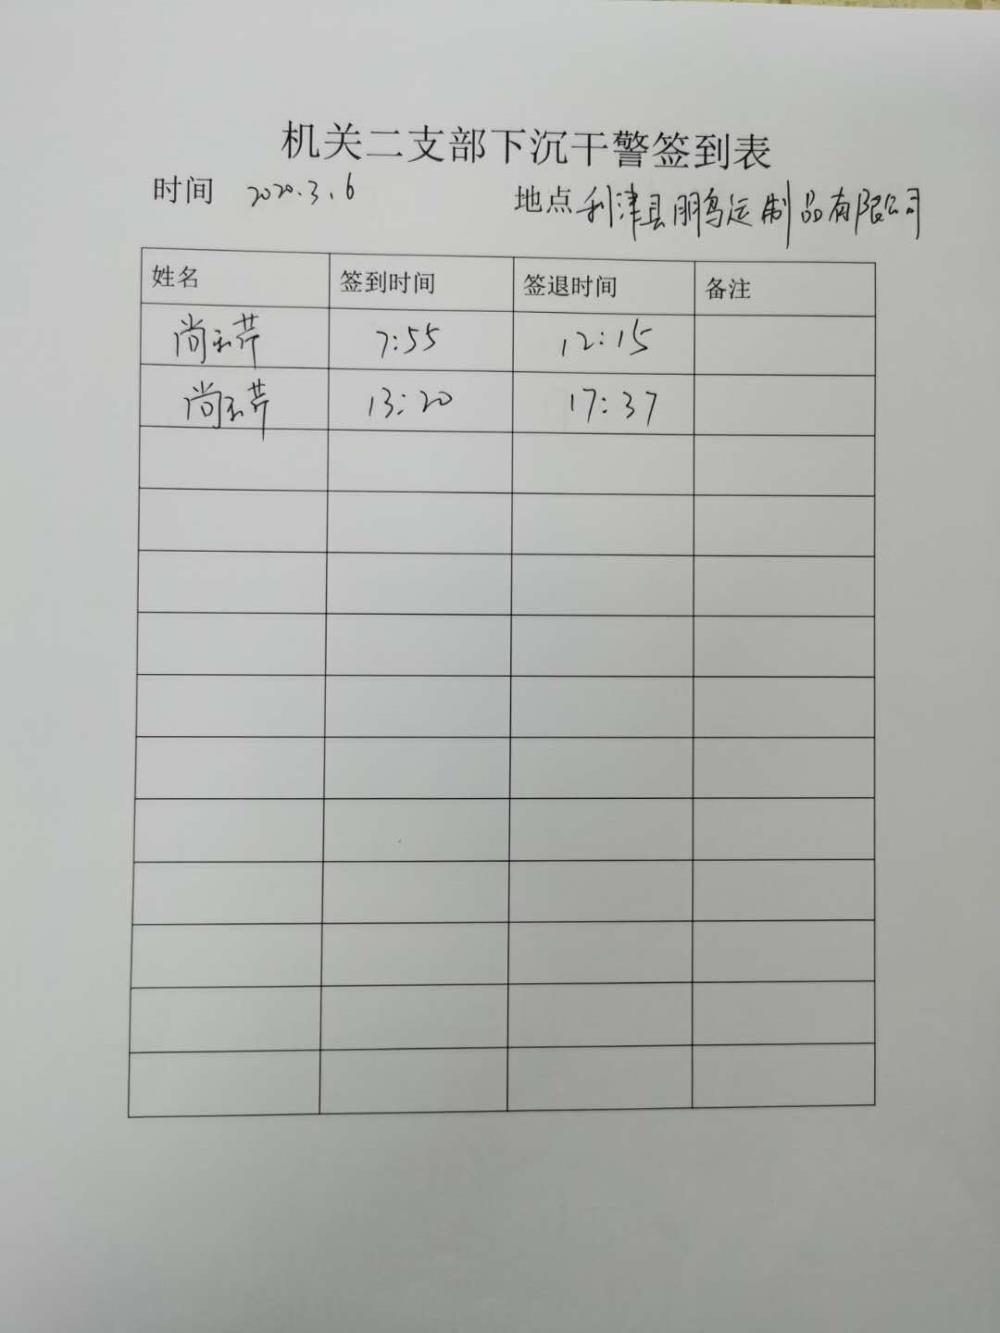 机关二支部下沉干警签到表
时间 2020.3.6 地点 利津县鹏鸟运制品有限公司
姓名 签到时间 签退时间 备注
尚玉芹 7:55 12:15
尚玉芹 13:20 17:37